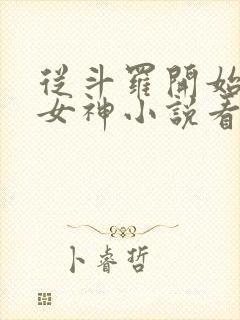 從斗羅開始
女神小說看
卜睿哲